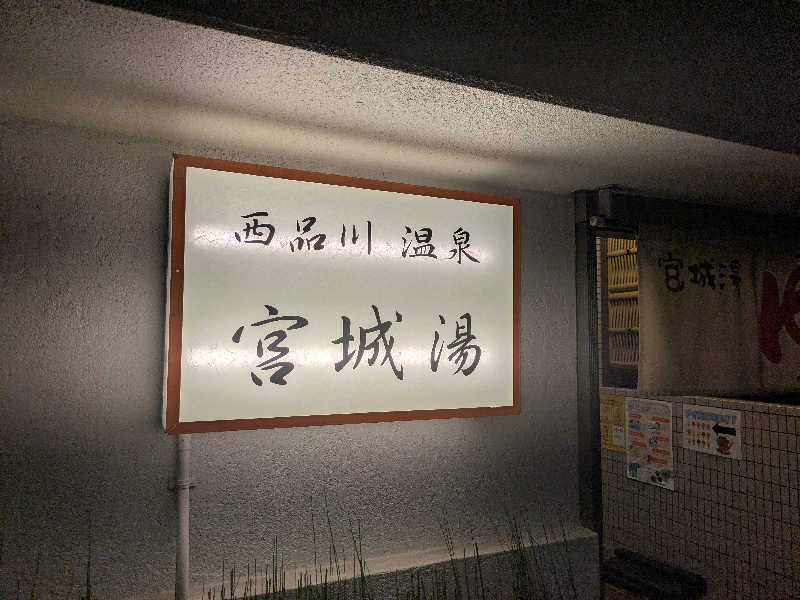 西品川 温泉
宮城湯
宮城湯